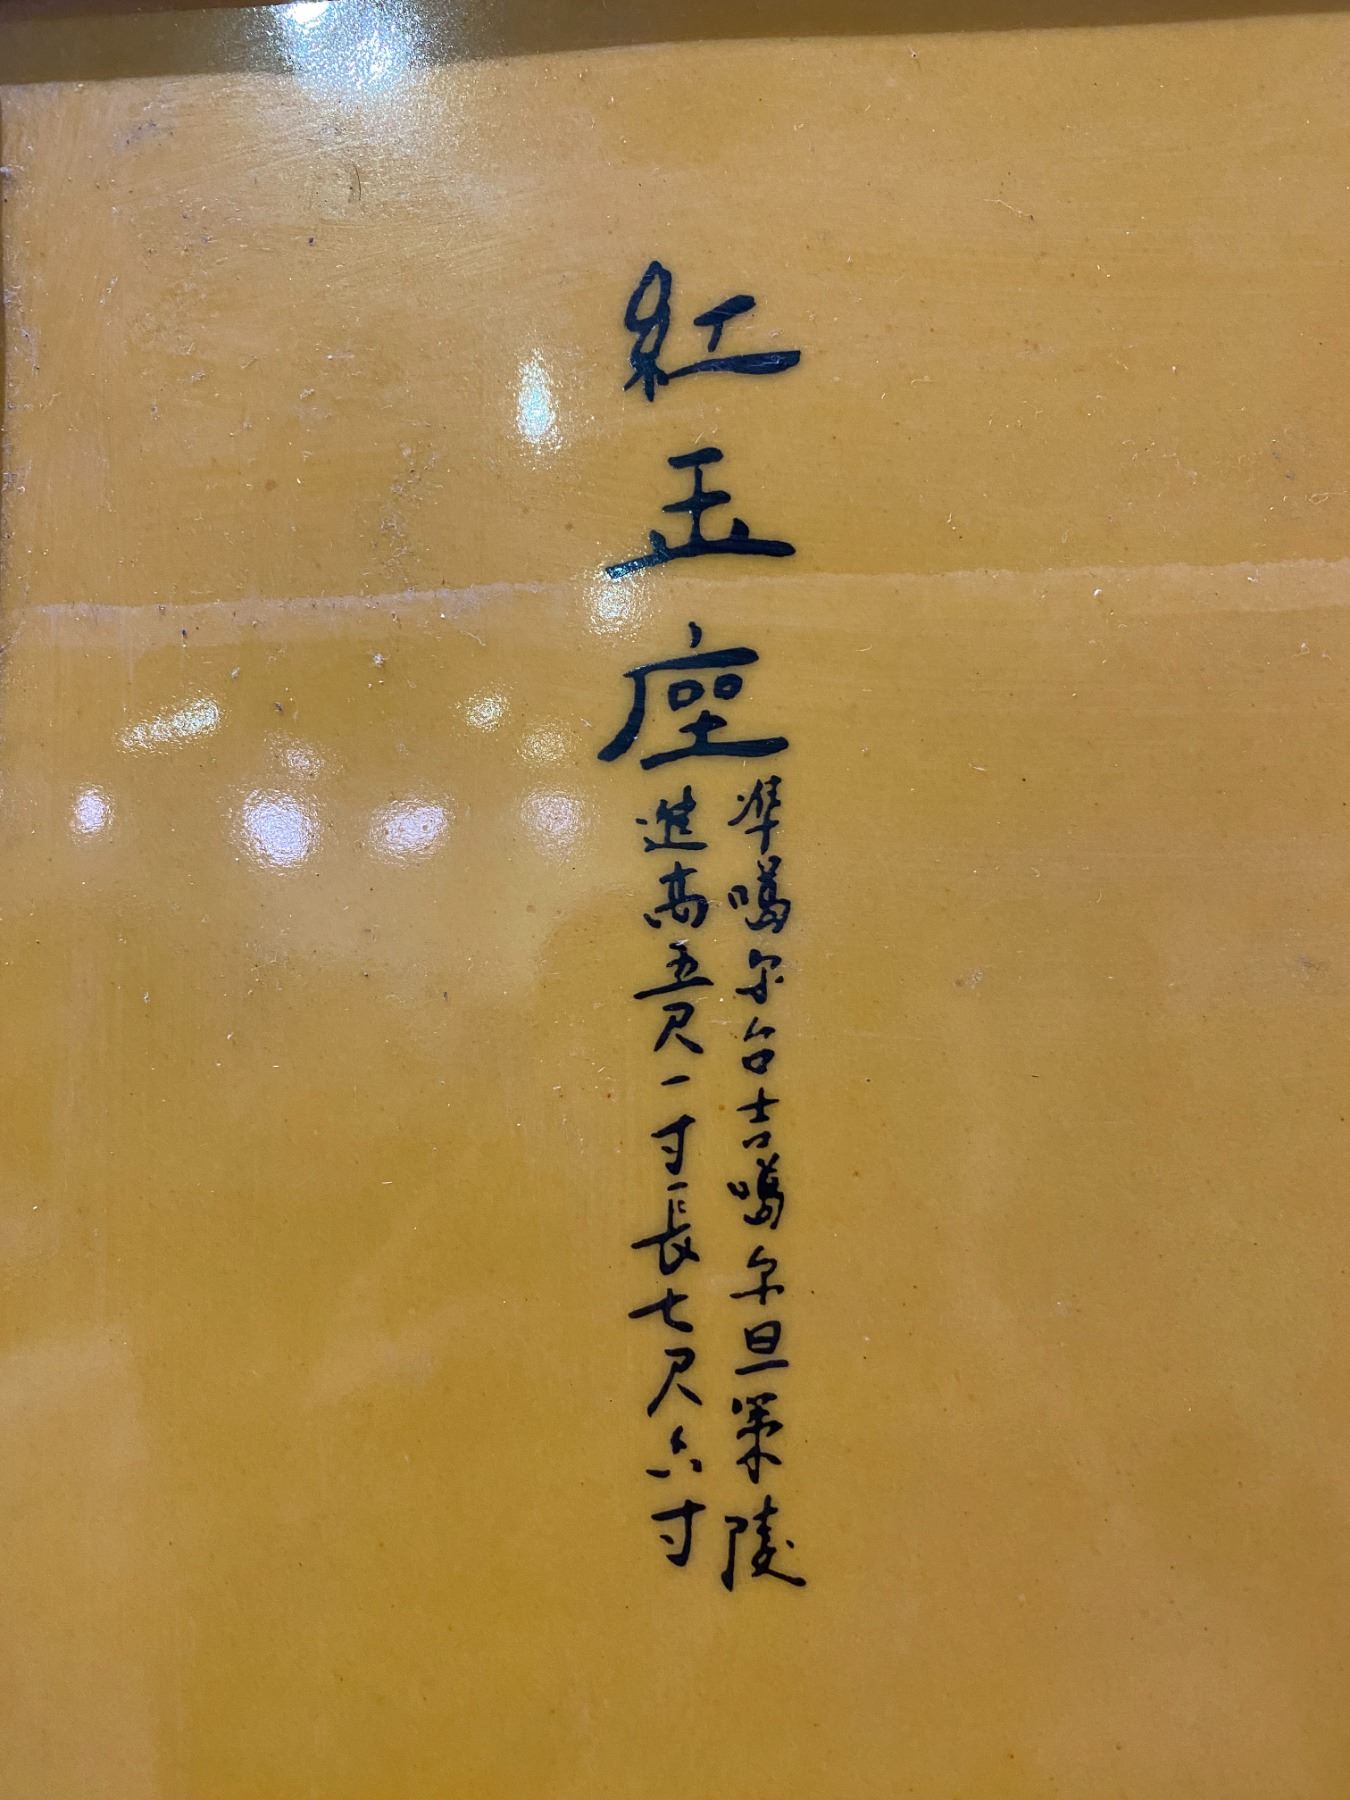 紅玉座
準噶尔台吉噶尔旦策陵
進高五尺一寸長七尺六寸